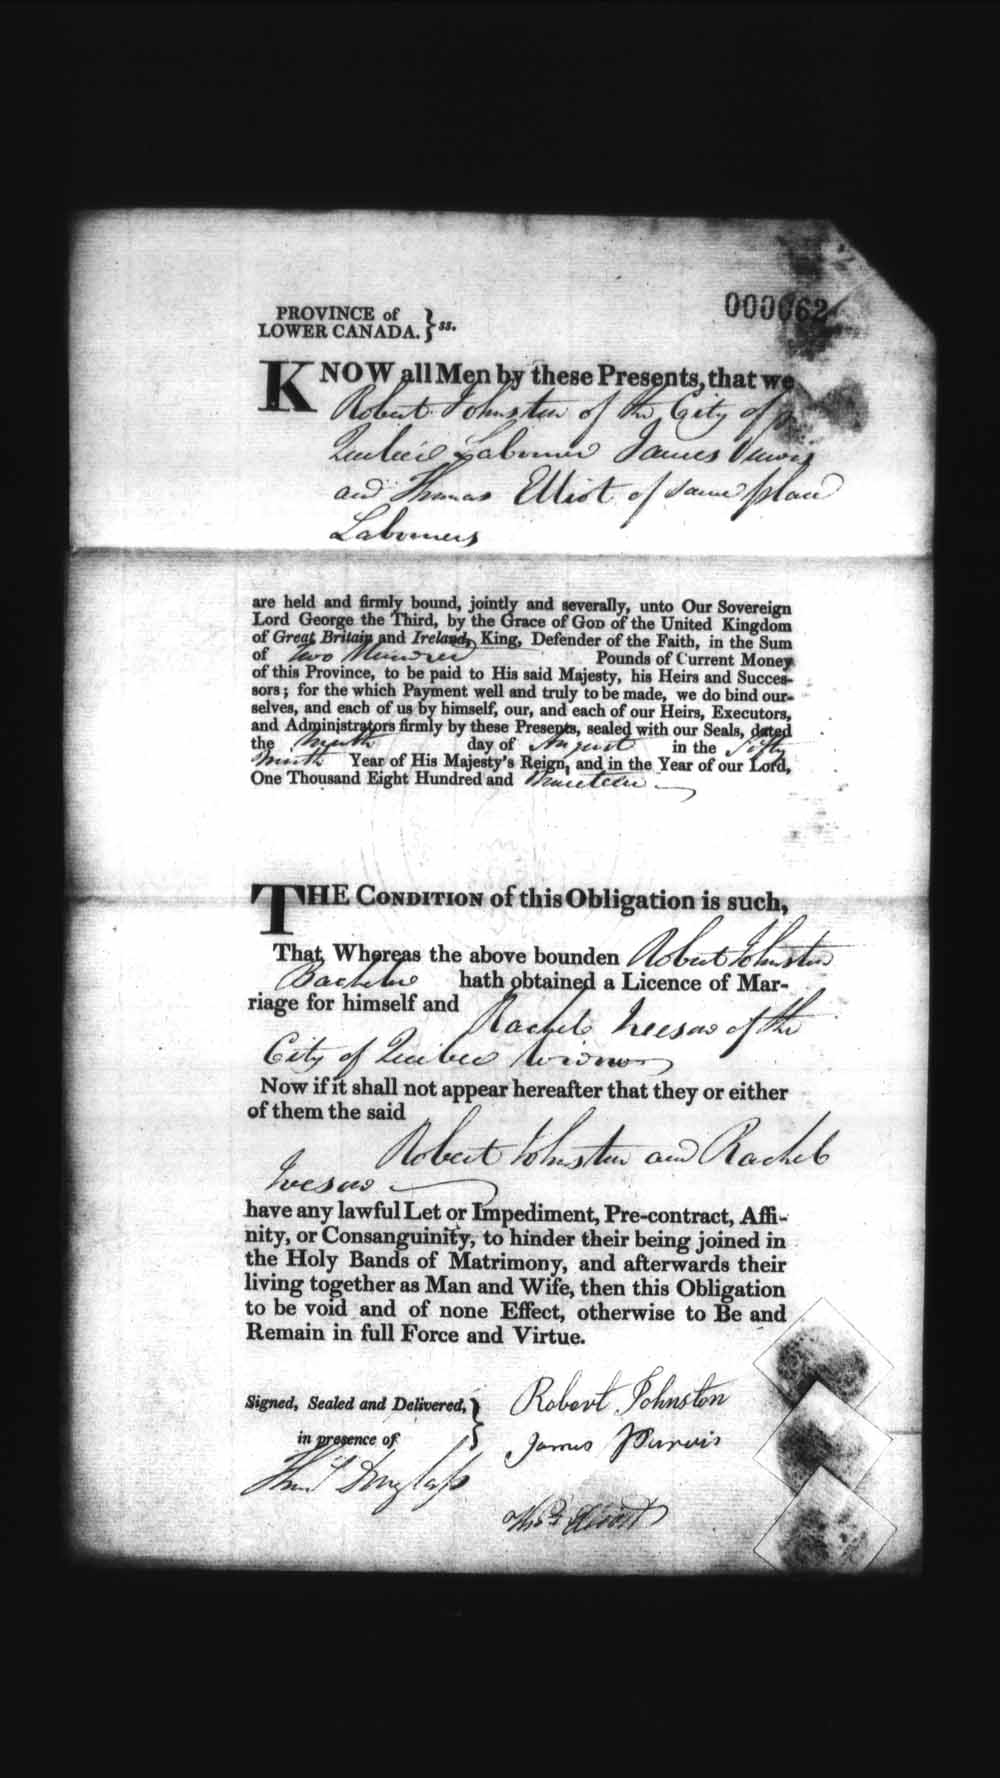 000062
PROVINCE of
LOWER CANADA. } ss.
KNOW all Men by these Presents, that we
Robert Johnston of the City of
Quebec Labourer James Purvis
and Thomas Elliot of same place
Labourers
are held and firmly bound, jointly and severally, unto Our Sovereign
Lord George the Third, by the Grace of GOD of the United Kingdom
of Great Britain and Ireland, King, Defender of the Faith, in the Sum
of Two Hundred Pounds of Current Money
of this Province, to be paid to His said Majesty, his Heirs and Succes-
sors; for the which Payment well and truly to be made, we do bind our-
selves, and each of us by himself, our, and each of our Heirs, Executors,
and Administrators firmly by these Presents, sealed with our Seals, dated
the Ninth day of August in the Fifty
Ninth Year of His Majesty's Reign, and in the Year of our Lord,
One Thousand Eight Hundred and Nineteen
THE CONDITION of this Obligation is such,
That, Whereas the above bounden Robert Johnston
Bachelor hath obtained a Licence of Mar-
riage for himself and
Rachel of the
City of Quebec Widow
Now if it shall not appear hereafter that they or either
of them the said
Robert Johnston and Rachel
have any lawful Let or Impediment, Pre-contract, Affi-
nity, or Consanguinity, to hinder their being joined in
the Holy Bands of Matrimony, and afterwards their
living together as Man and Wife, then this Obligation
to be void and of none Effect, otherwise to Be and
Remain in full Force and Virtue.
Signed, Sealed and Delivered, } Robert Johnston
in presence of James Purvis
Thos Douglass
Thos Elliott